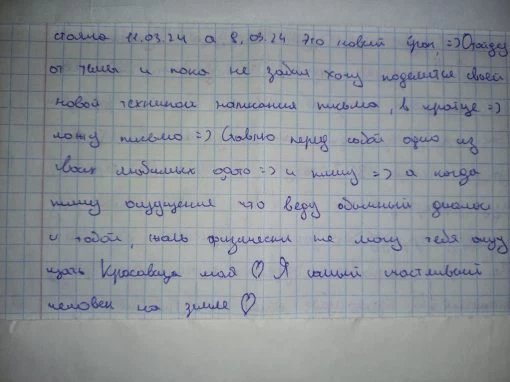 стояла 11.03.24 а 8.03.24 это новый =) Отойду
от темы и пока не забыл хочу поделится своей
новой техникой написания письма, в кратце =)
ложу письмо =) Ставлю перед собой одно из
твоих любимых фото =) и пишу =) а когда
пишу ощущение что веду обычный диалог
с тобой, жаль физически не могу тебя ощу
щать Красавица моя ♡ Я самый счастливый
человек на земле ♡